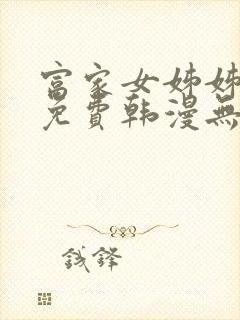 富家女姊姊
免費韩漫無
钱鋒